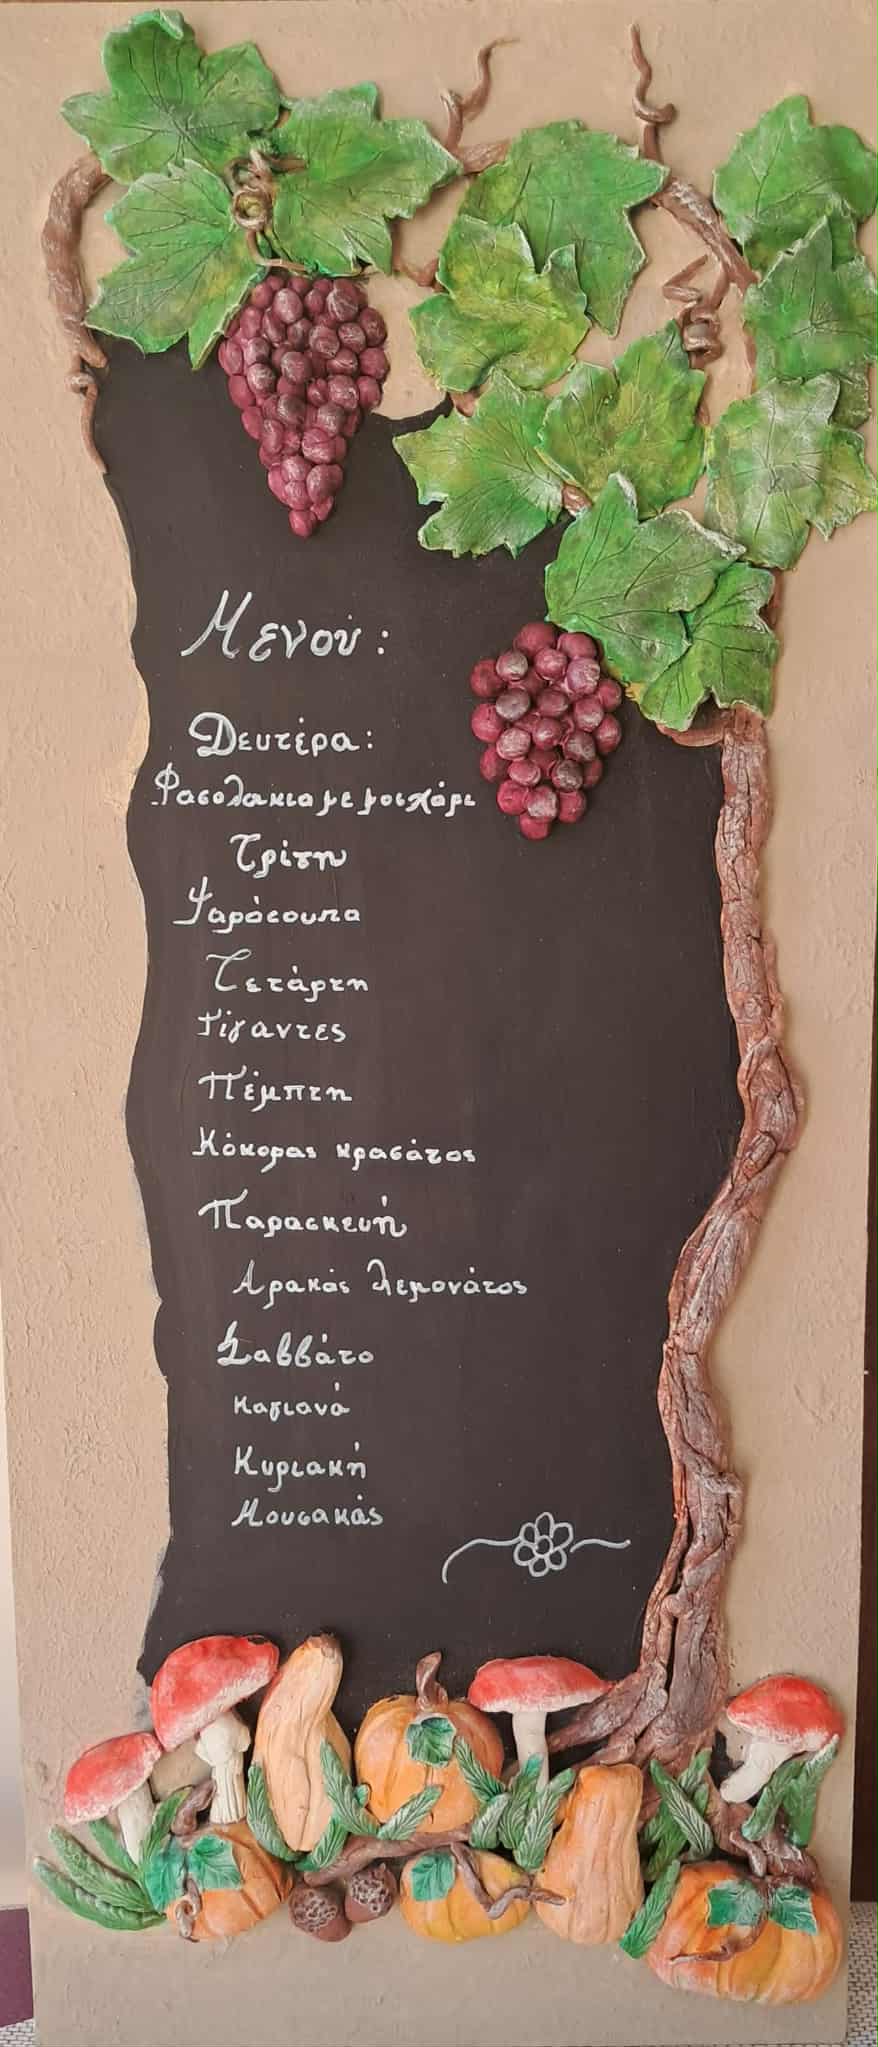 Μενού:
Δευτέρα:
Φασολακια με μοσχάρι
Τρίτη
Ψαρόσουπα
Τετάρτη
Γίγαντες
Πέμπτη
Κόκορας κρασάτος
Παρασκευή
Αρακάς λεμονάτος
Σαββάτο
Καγιανά
Κυριακή
Μουσακάς